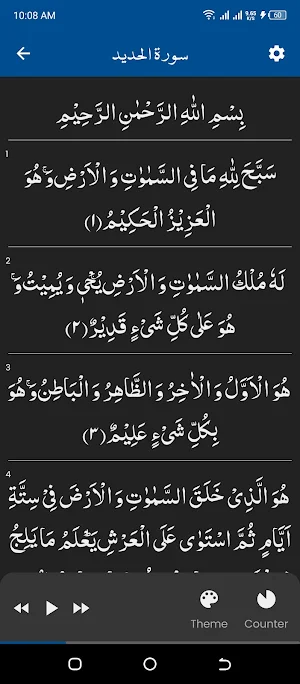 10:08 AM
9.85 K/s
60
سورة الحديد
بِسْمِ اللّٰهِ الرَّحْمٰنِ الرَّحِيْمِ
1
سَبَّحَ لِلّٰهِ مَا فِى السَّمٰوٰتِ وَ الْاَرْضِ ۚ وَ هُوَ
الْعَزِيْزُ الْحَكِيْمُ (۱)
2
لَهٗ مُلْكُ السَّمٰوٰتِ وَ الْاَرْضِ ۚ يُحْيٖ وَ يُمِيْتُ ۚ وَ
هُوَ عَلٰى كُلِّ شَیْءٍ قَدِيْرٌ (۲)
3
هُوَ الْاَوَّلُ وَ الْاٰخِرُ وَ الظَّاهِرُ وَ الْبَاطِنُ ۚ وَ هُوَ
بِكُلِّ شَیْءٍ عَلِيْمٌ (۳)
4
هُوَ الَّذِيْ خَلَقَ السَّمٰوٰتِ وَ الْاَرْضَ فِيْ سِتَّةِ
اَيَّامٍ ثُمَّ اسْتَوٰى عَلَى الْعَرْشِ ؕ يَعْلَمُ مَا يَلِجُ
Theme
Counter